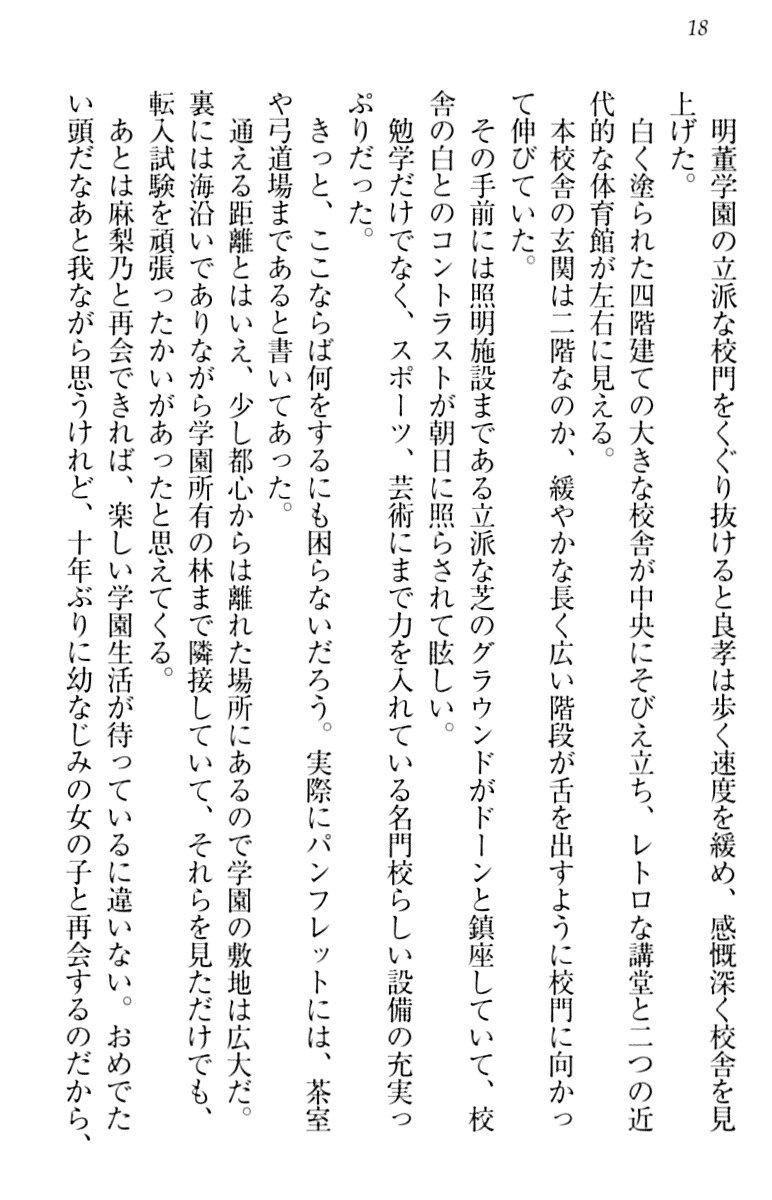 18
明董学園の立派な校門をくぐり抜けると良孝は歩く速度を緩め、感慨深く校舎を見
上げた。
白く塗られた四階建ての大きな校舎が中央にそびえ立ち、レトロな講堂と二つの近
代的な体育館が左右に見える。
本校舎の玄関は二階なのか、緩やかな長く広い階段が舌を出すように校門に向かっ
て伸びていた。
その手前には照明施設まである立派な芝のグラウンドがドーンと鎮座していて、校
舎の白とのコントラストが朝日に照らされて眩しい。
勉学だけでなく、スポーツ、芸術にまで力を入れている名門校らしい設備の充実っ
ぷりだった。
きっと、ここならば何をするにも困らないだろう。実際にパンフレットには、茶室
や弓道場まであると書いてあった。
通える距離とはいえ、少し都心からは離れた場所にあるので学園の敷地は広大だ。
裏には海沿いでありながら学園所有の林まで隣接していて、それらを見ただけでも、
転入試験を頑張ったかいがあったと思えてくる。
あとは麻梨乃と再会できれば、楽しい学園生活が待っているに違いない。おめでた
い頭だなあと我ながら思うけれど、十年ぶりに幼なじみの女の子と再会するのだから、